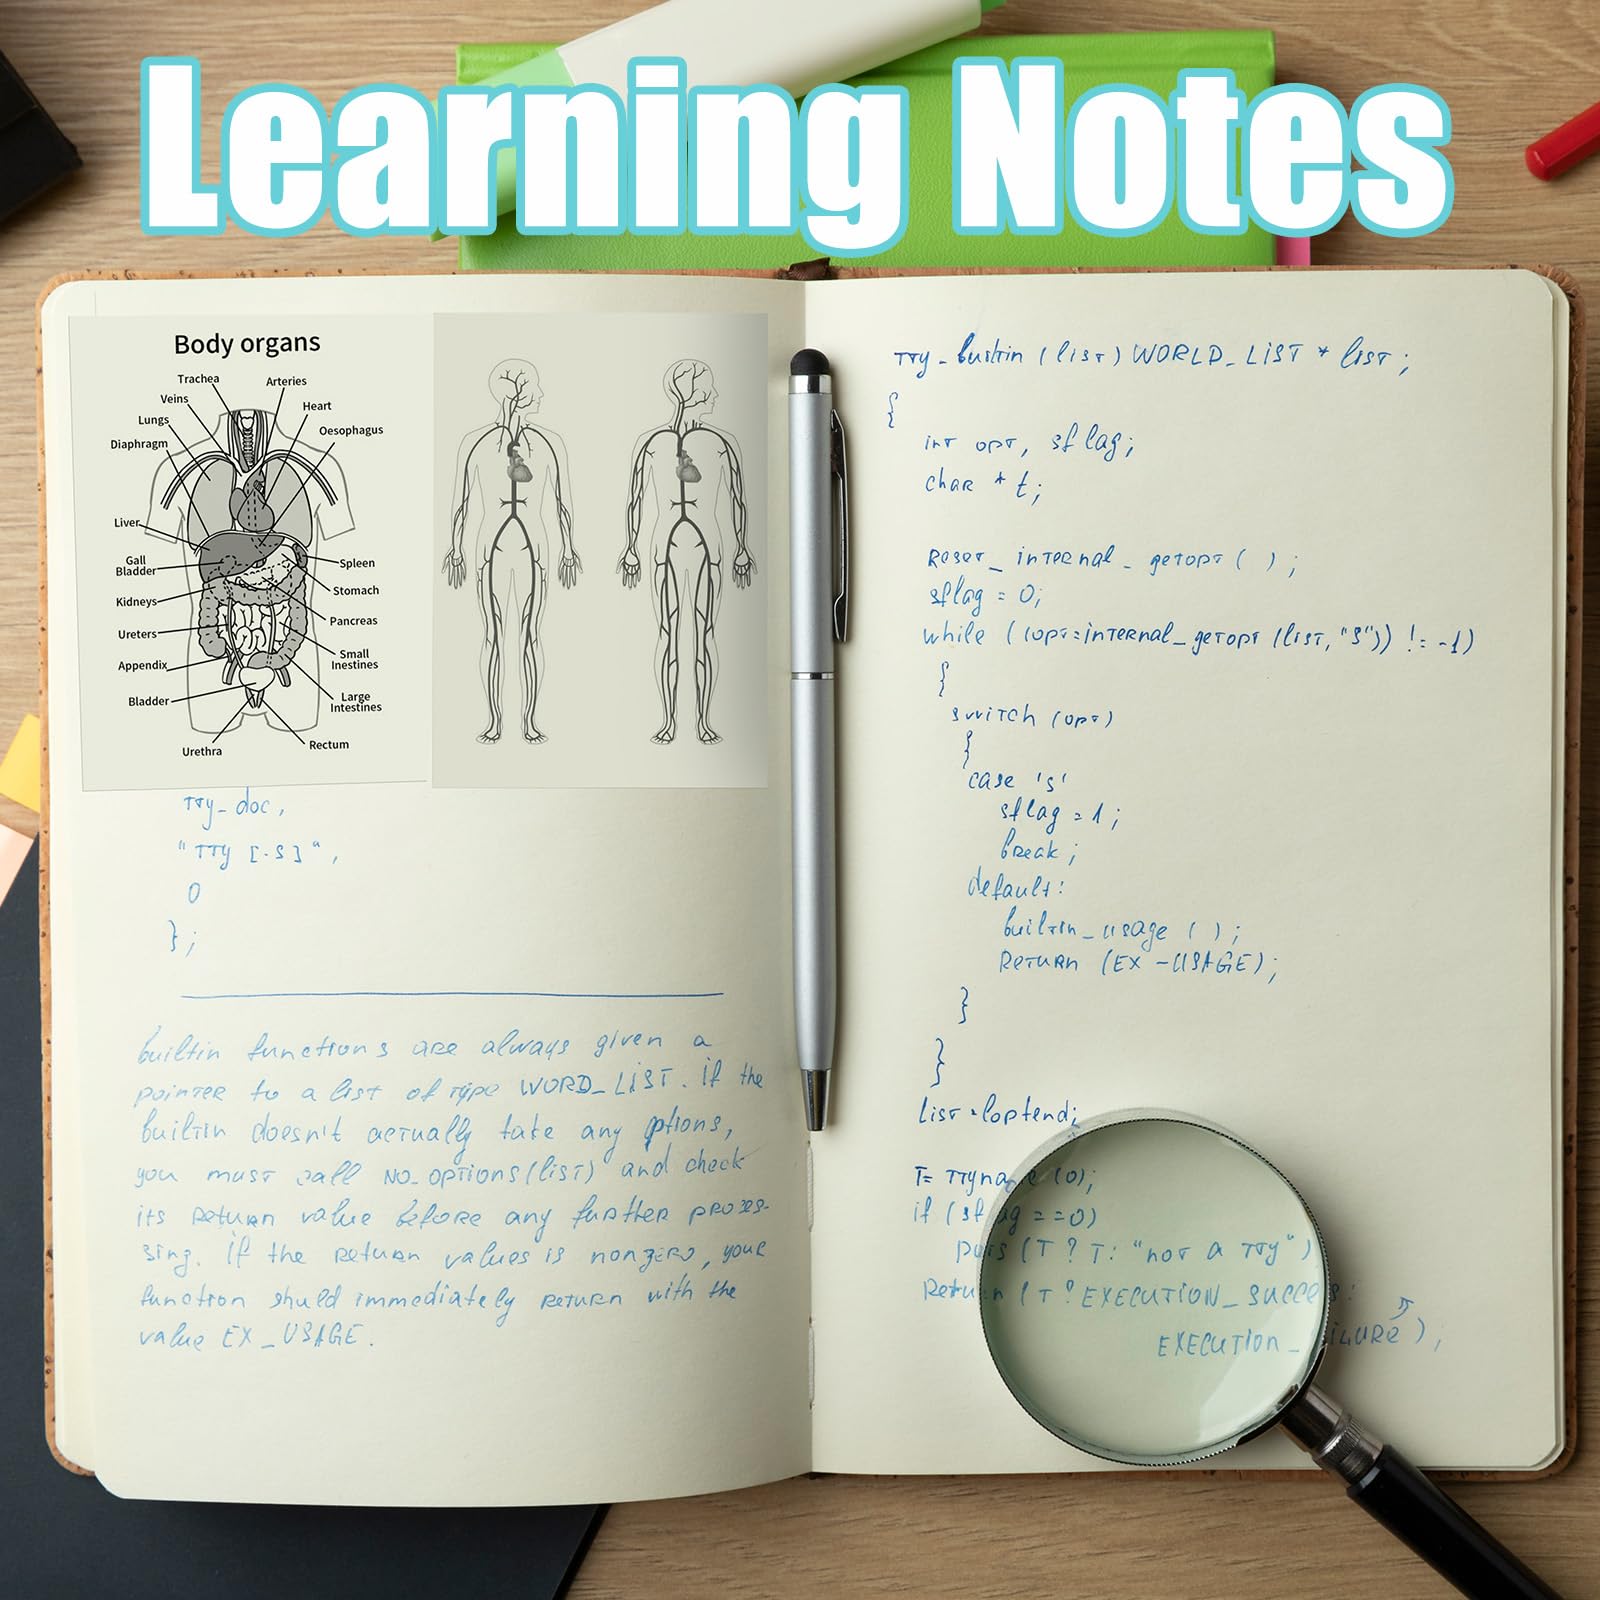 Learning Notes
Body organs
Trachea
Arteries
Veins
Heart
Lungs
Oesophagus
Diaphragm
Liver
Gall
Bladder
Spleen
Stomach
Kidneys
Pancreas
Ureters
Small
Inestines
Appendix
Large
Intestines
Bladder
Urethra
Rectum
TTY_doc,
"TTY [-S]",
0
};
builtin functions are always given a
pointer to a list of type WORD_LIST. If the
builtin doesn't actually take any options,
you must call NO_OPTIONS(list) and check
its Return value before any further proces-
sing. If the Return values is nonzero, your
function shuld immediately Return with the
value EX_USAGE.
TTY_builtin (list) WORLD_LIST * list;
{
int opt, sflag;
char * t;
Reset_internal_getopt ( );
sflag = 0;
while ((opt=internal_getopt (list, "S")) != -1)
{
switch (opt)
{
case 's'
sflag = 1;
break;
default:
builtin_usage ( );
Return (EX-USAGE);
}
}
List=loptend;
T= TTyname (0);
if (sflag ==0)
puts (T ? T: "not a TTY")
Return (T ? EXECUTION_SUCCESS:
EXECUTION_FAILURE);